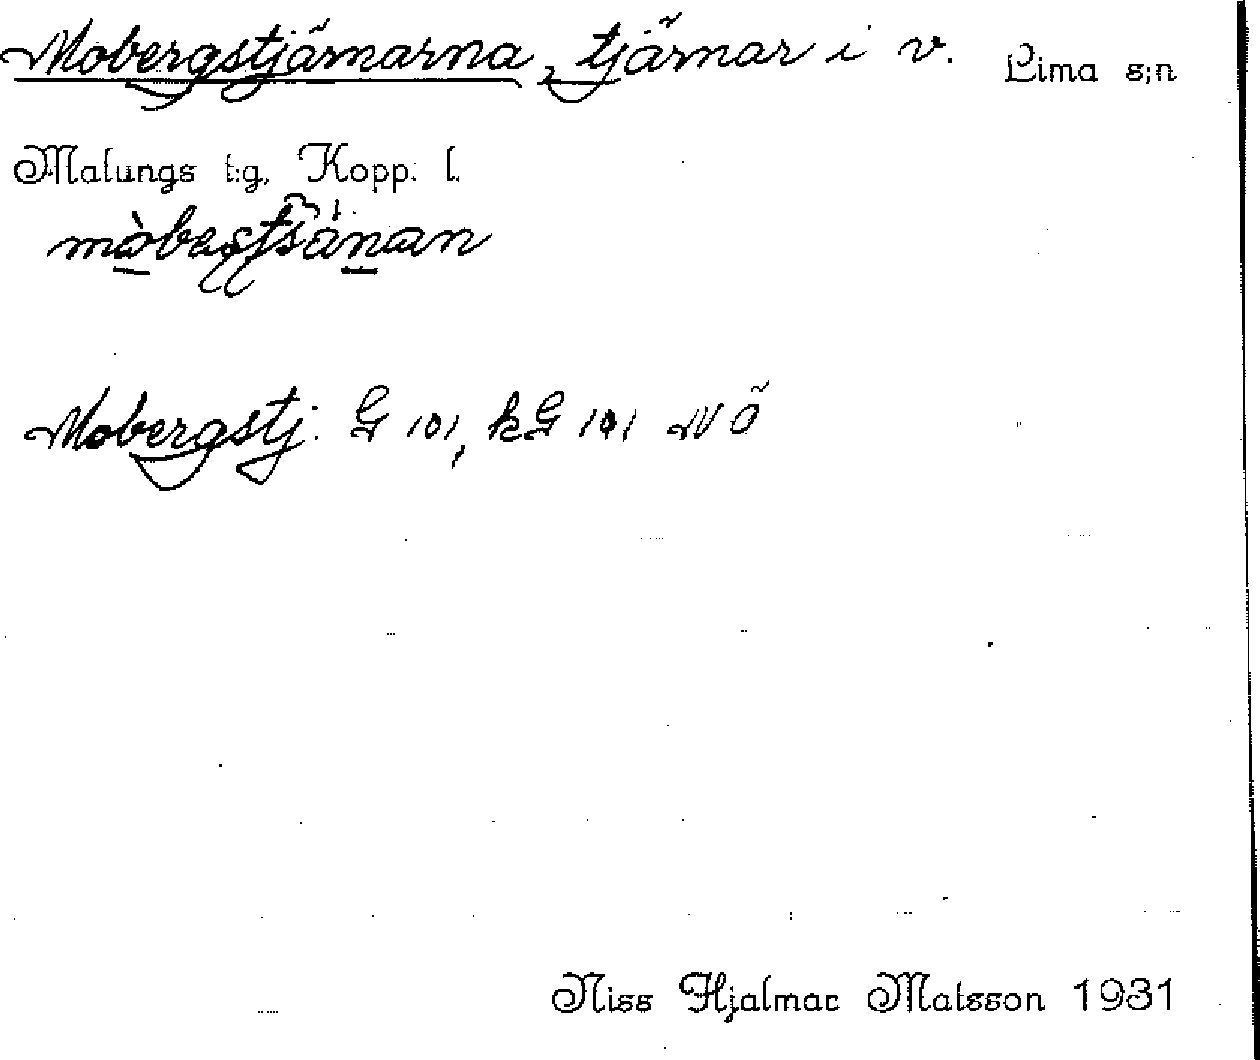 Mobergstjärnarna, tjärnar i v. Lima s;n
Malungs t:g. Kopp. l.
Mobergstj. G 101, kG 101 NÖ
Niss Hjalmar Matsson 1931